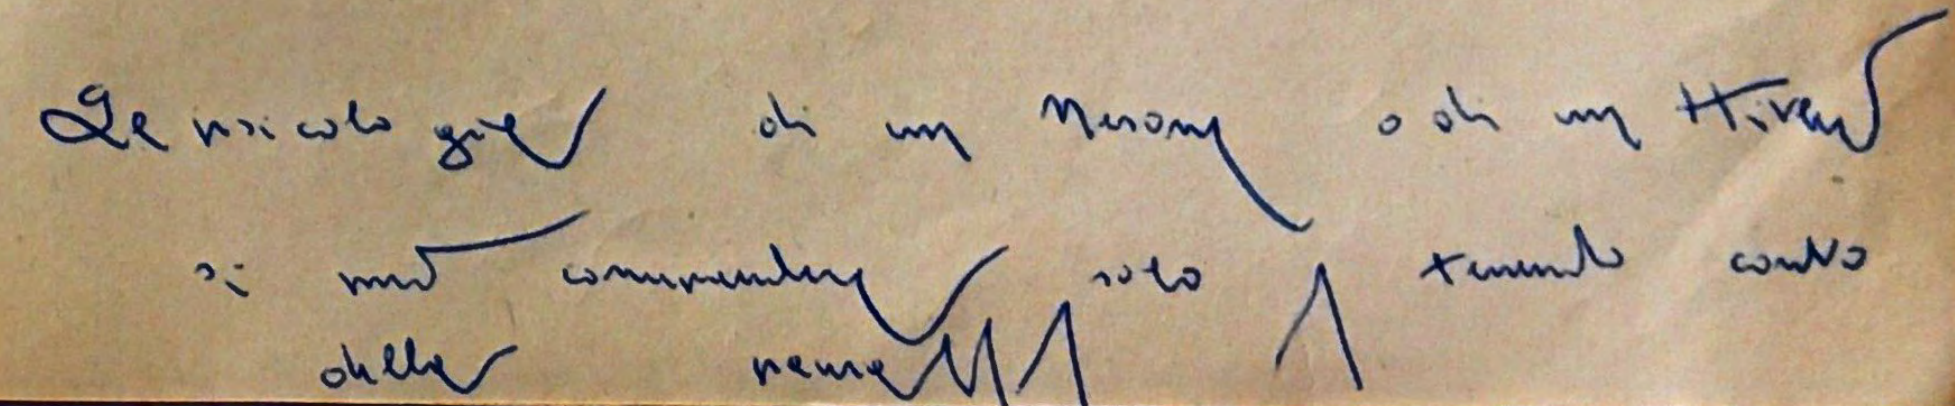 La psicologia di un Nerone o di un Hitler
si può comprendere solo tenendo conto
della paura